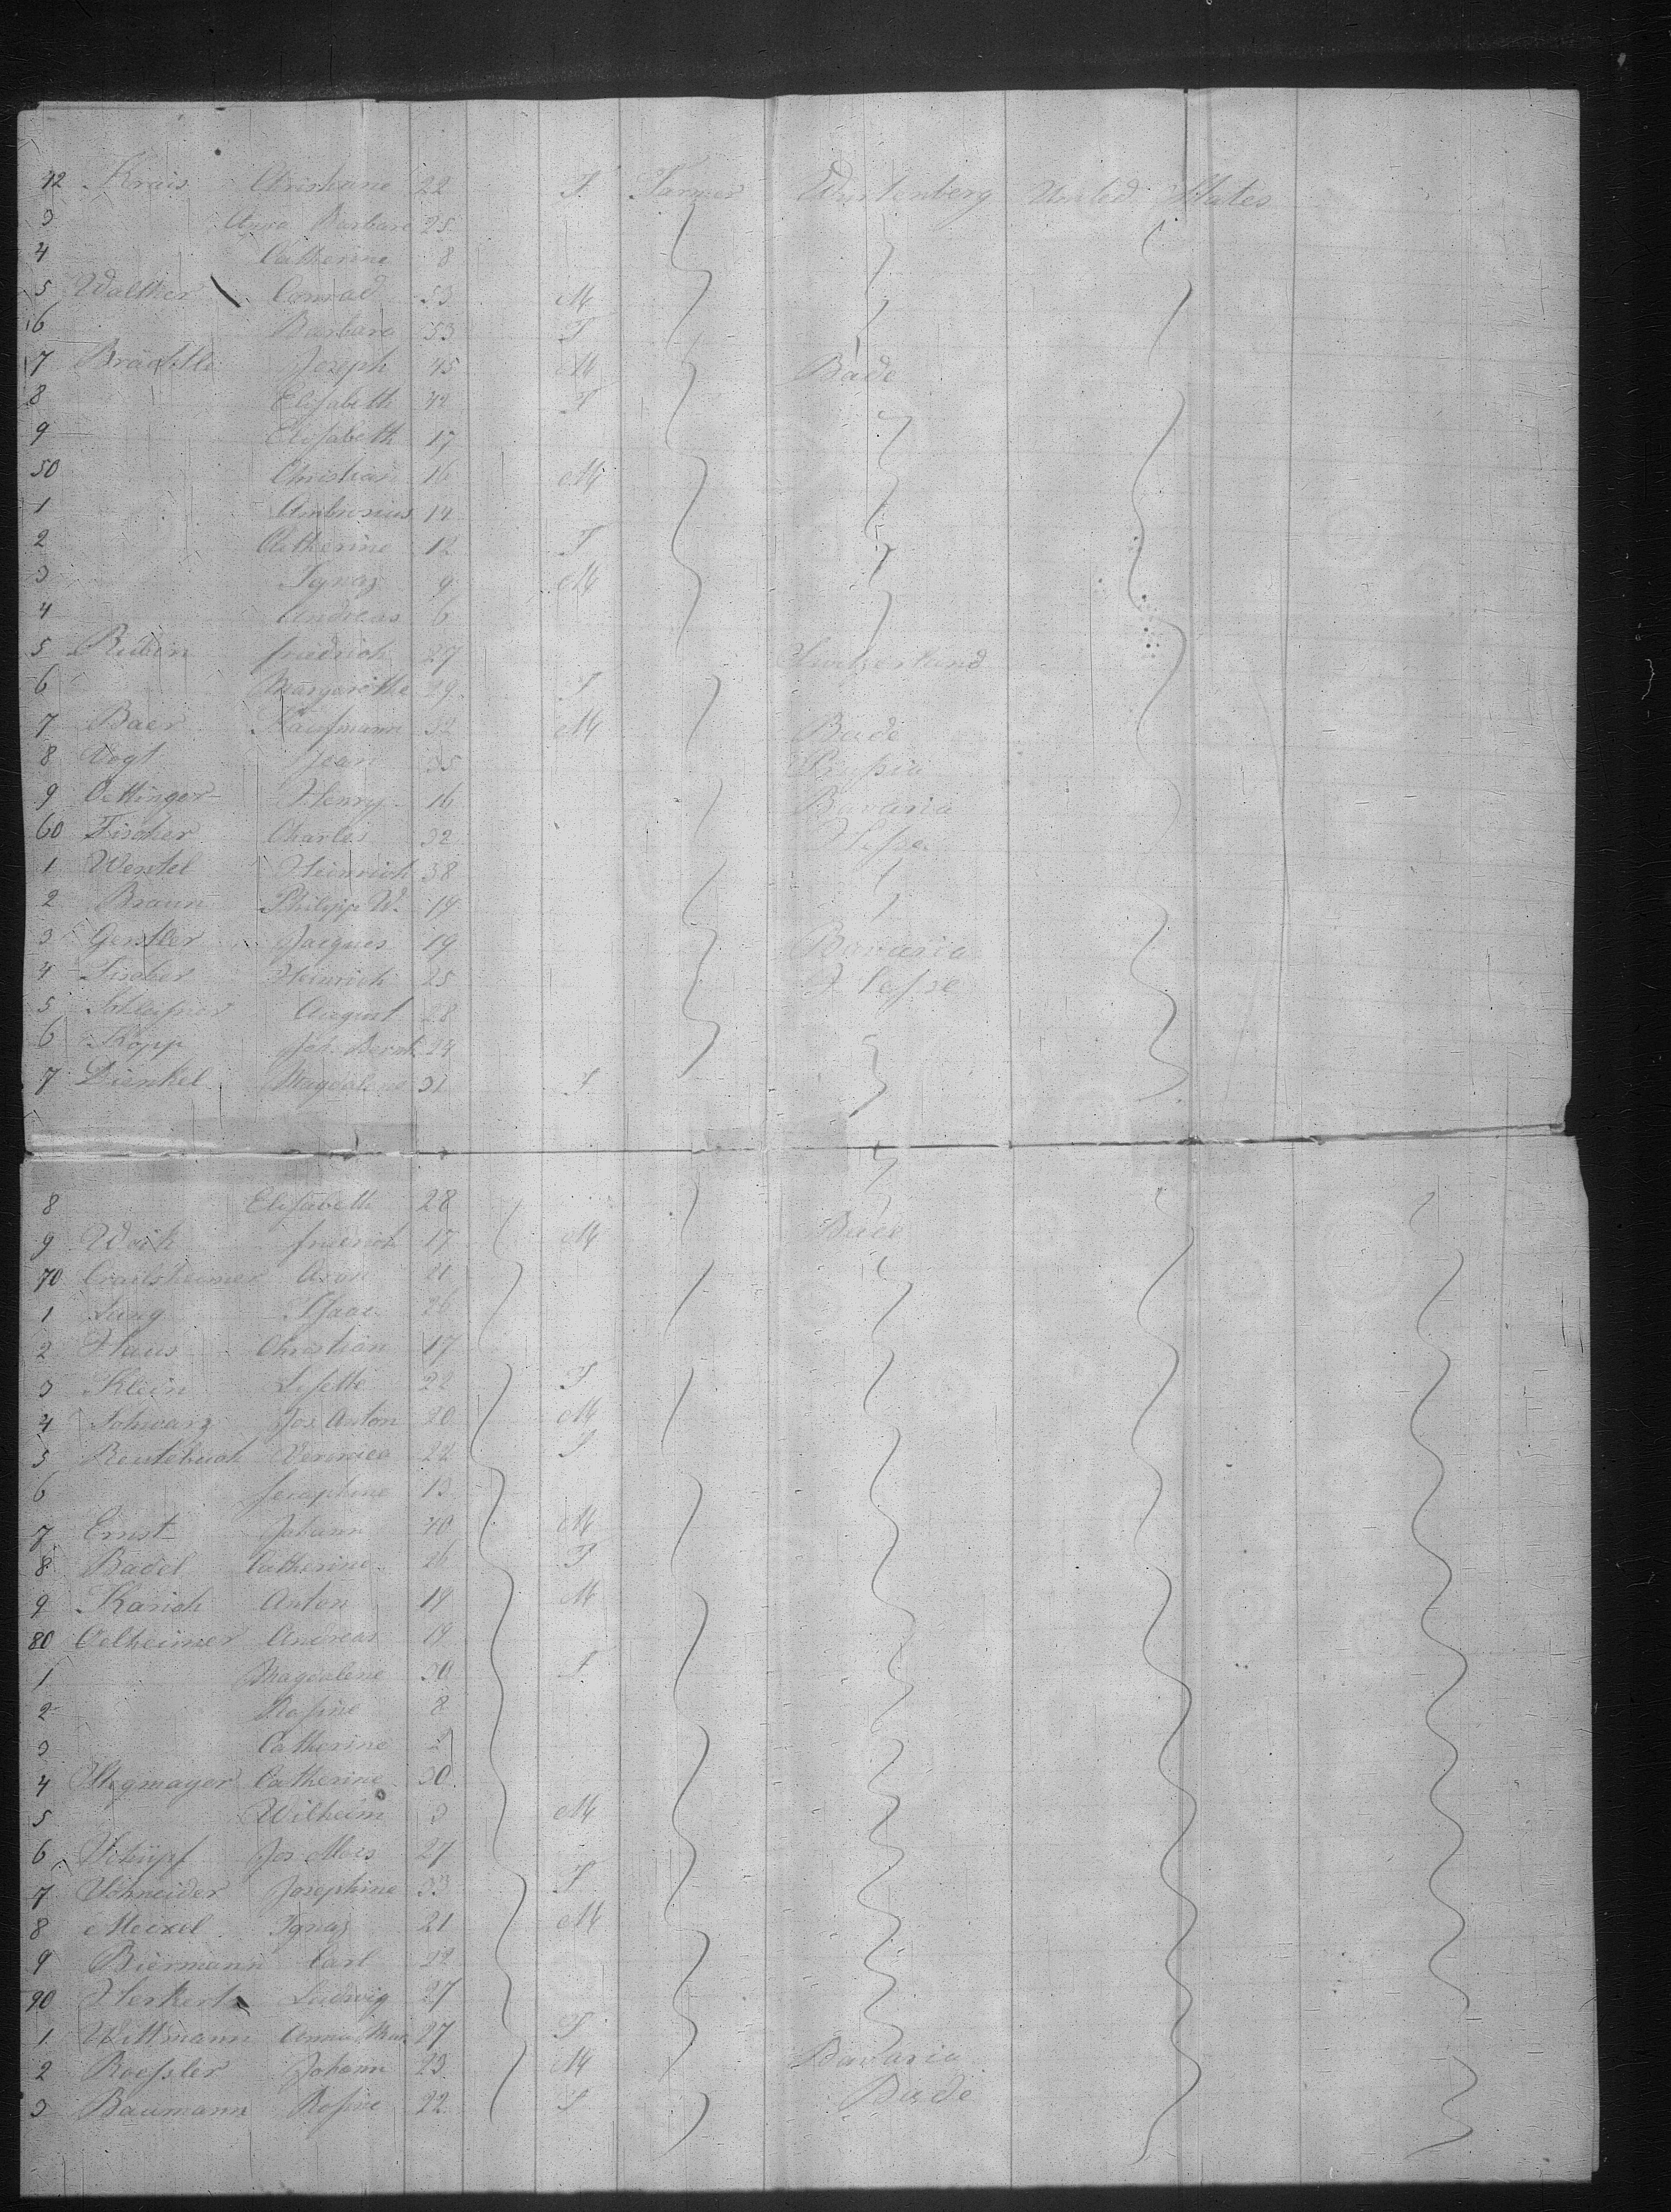 42 Krais Christiane 22 F. Farmer Wurtenberg United States
3 Anna Barbara 25
4 Catherine 8
5 Walther Conrad 53 M
6 Barbara 53 F
7 Brächtle Joseph 45 M Bade
8 Elisabeth 42 F
9 Elisabeth 17
50 Christian 16 M
1 Ambrosius 14
2 Catherine 12 F
3 Ignaz 9 M
4 Andreas 6
5 friedrich 27 Switzerland
6 Margarethe 29 F
7 Baer Kaufmann 32 M Bade
8 Vogt Jean 35 Prussia
9 Oettinger Henry 16 Bavaria
60 Fischer Charles 32 Hesse
1 Wentel Heinrich 38
2 Braun Philipp W. 19
3 Gerstler Jacques 19 Bavaria
4 Fischer Heinrich 25 Hesse
5 August 28
6 Kopp Joh. Bernh. 24
7 Dienkel Magdalene 31 F
8 Elisabeth 28
9 friedrich 17 M Bade
70 Crailsheimer Aron 21
1 Jung Isaac 26
2 Haus Christian 17
3 Klein Lisette 22 F
4 Schwarz Jos Anton 20 M
5 Reutebuch Veronica 22 F
6 Seraphine 13
7 Ernst Johann 40 M
8 Badel Catherine 26 F
9 Karich Anton 19 M
80 Oelheimer Andreas 19
1 Magdalene 30 F
2 Rosine 8
3 Catherine 2
4 Stegmayer Catherine 30
5 Wilhelm 3 M
6 Schüpf Jos Alois 27
7 Schneider Josephine 33 F
8 Meixel Ignaz 21 M
9 Biermann Carl 22
90 Herkert Ludwig 27
1 Wittmann Anna Mar. 27 F
2 Roessler Johann 23 M Bavaria
3 Baumann Rosine 22 F Bade